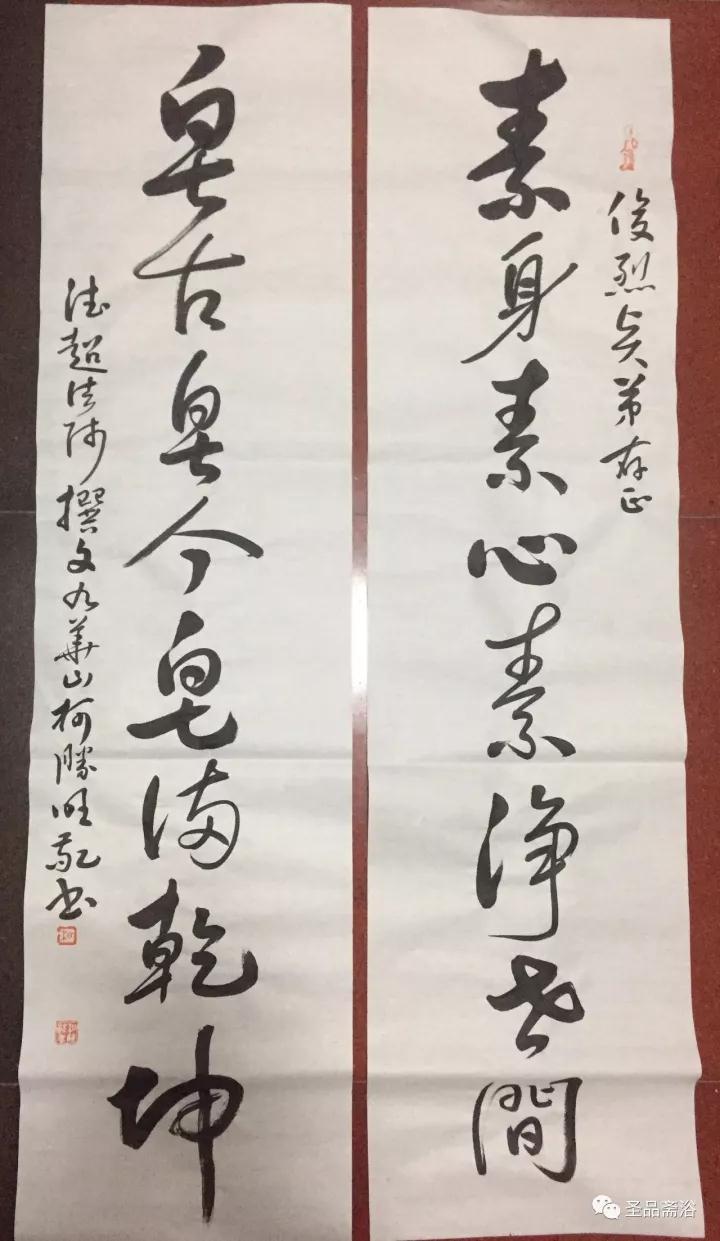 俊烈贤弟存正
素身素心素淨世間
皂古皂今皂满乾坤
德超法师撰文九華山柯勝旺敬书
圣品斋浴